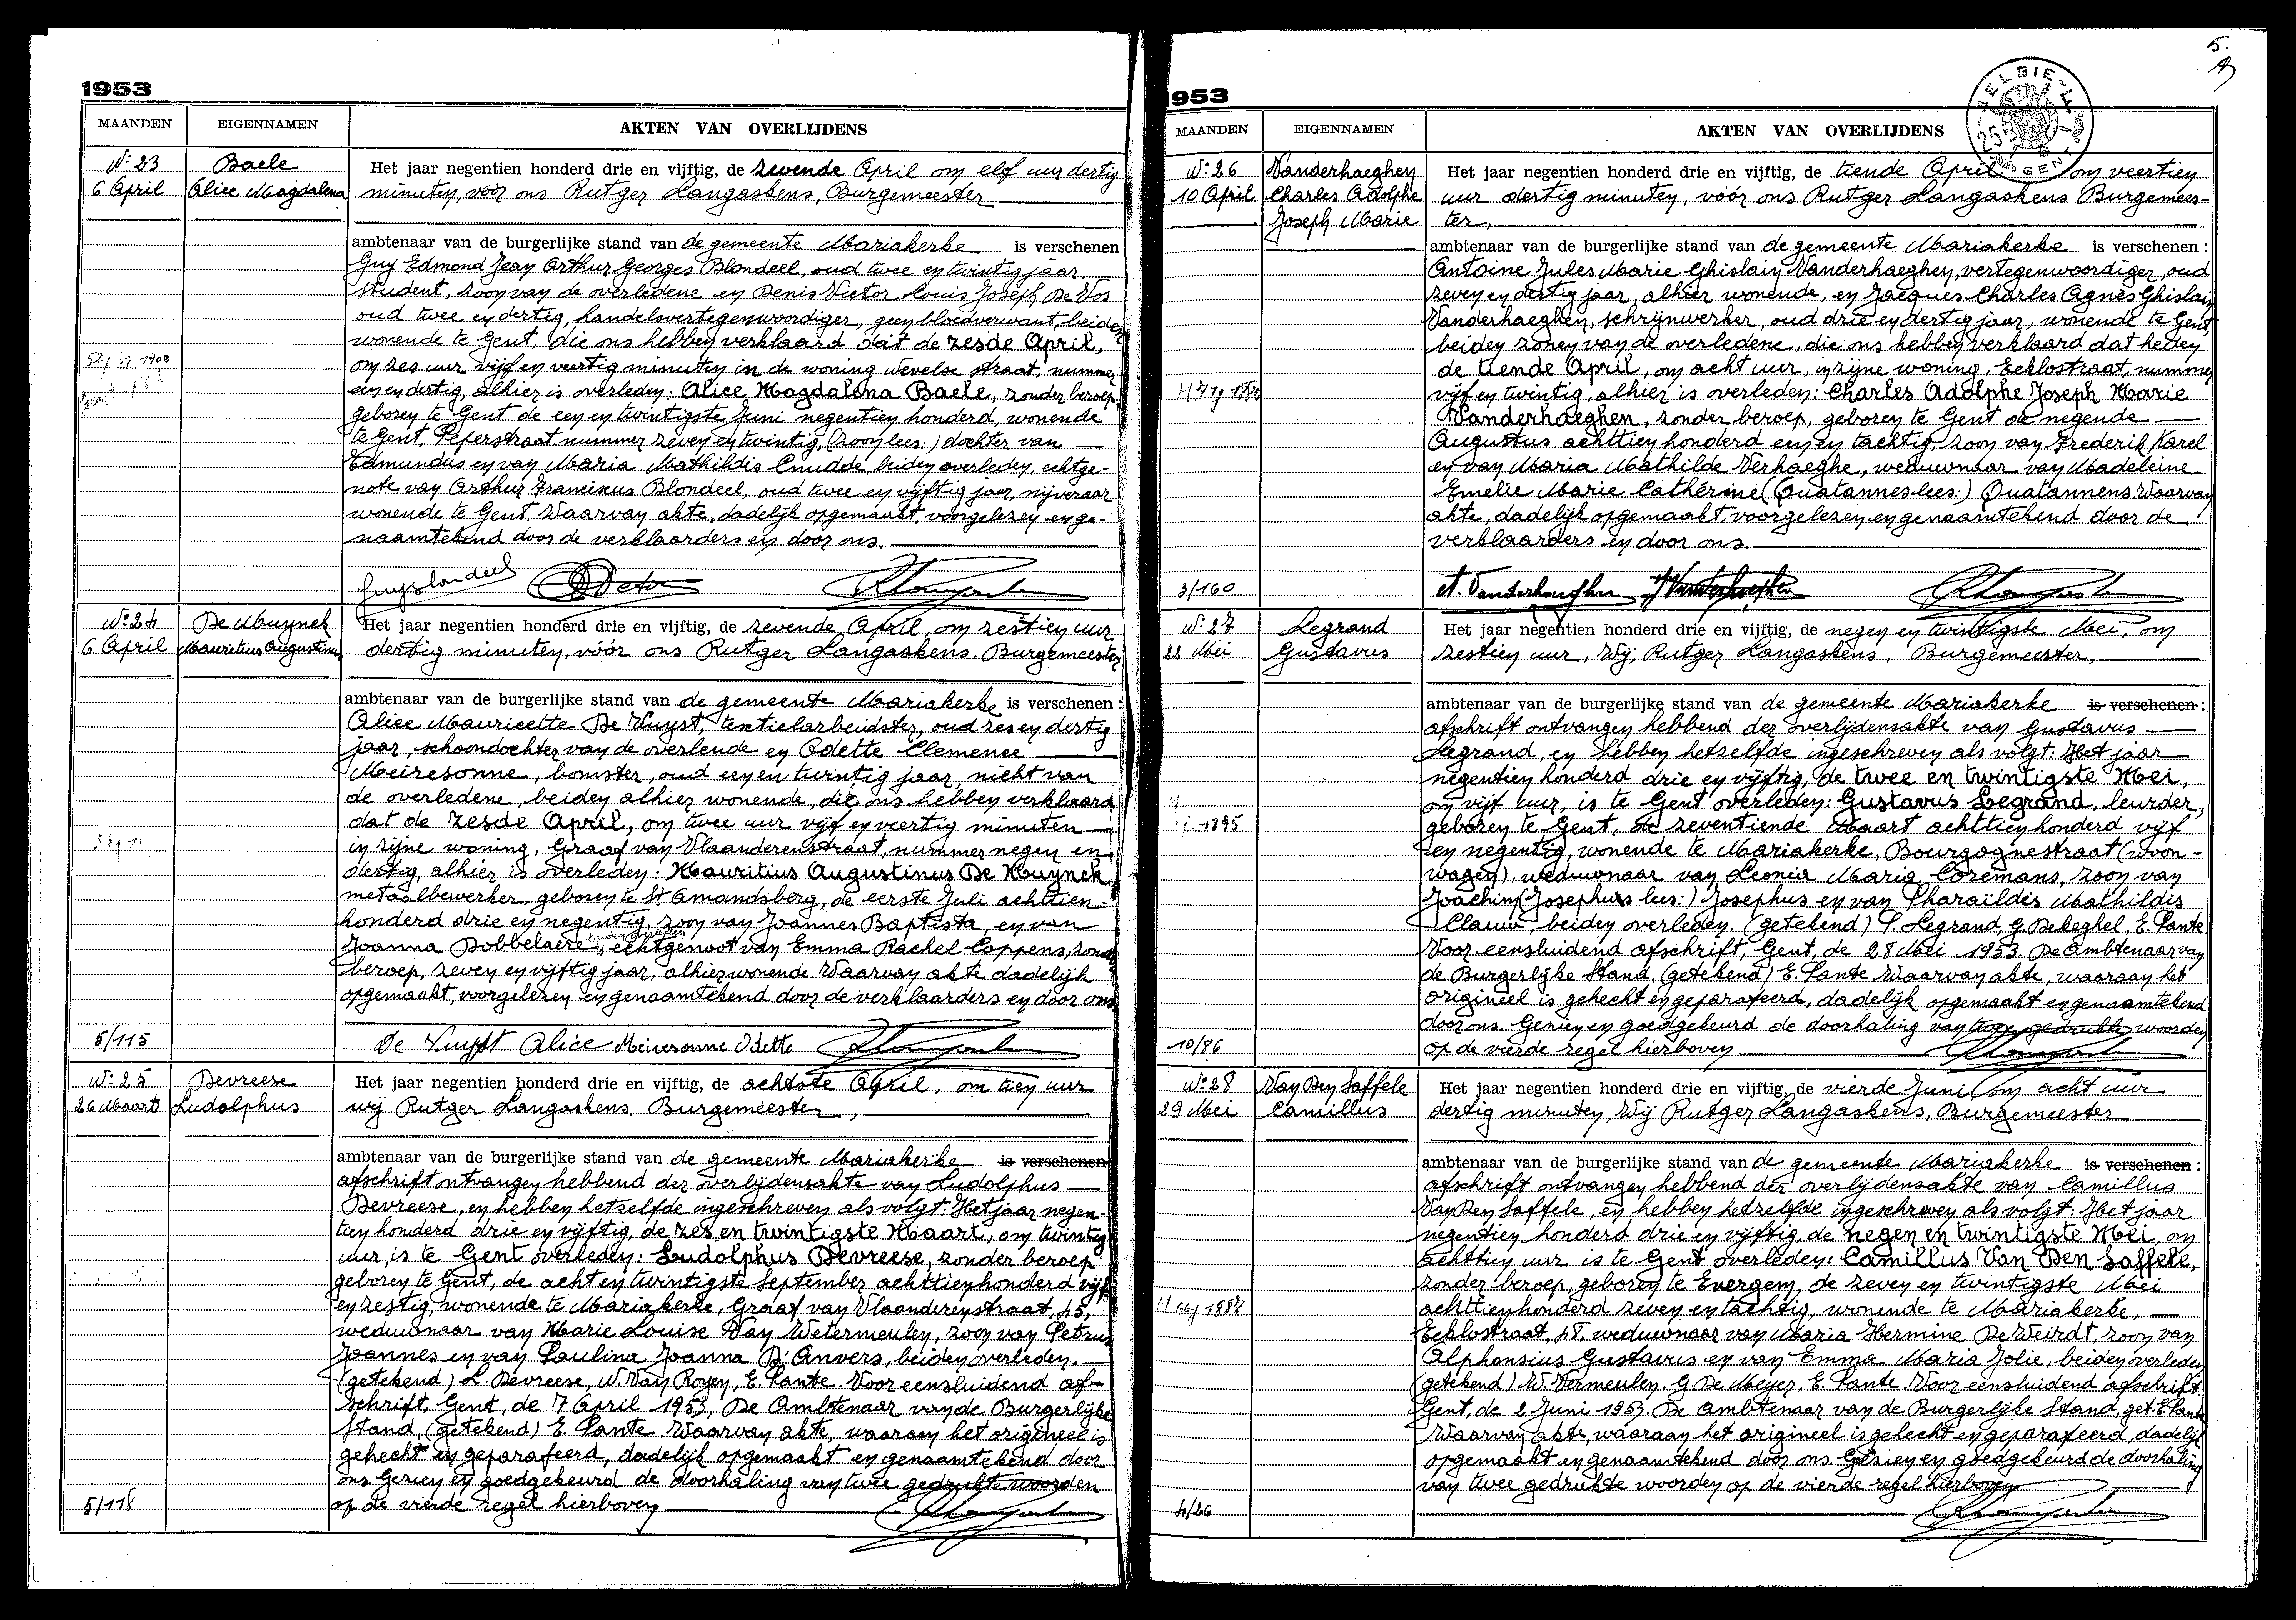 1953
MAANDEN EIGENNAMEN AKTEN VAN OVERLIJDENS
No 23
6 April
Baele
Alice Magdalena
Het jaar negentien honderd drie en vijftig, de zevende April om elf uur dertig
minuten, vóór ons Rutger Langaskens, Burgemeester
ambtenaar van de burgerlijke stand van de gemeente Mariakerke is verschenen
Guy Edmond Jean Arthur Georges Blondeel, oud twee en twintig jaar,
student, zoon van de overledene en Denis Victor Louis Joseph De Vos
oud twee en dertig, handelsvertegenwoordiger, geen bloedverwant, beiden
wonende te Gent, die ons hebben verklaard dat de zesde April,
om zes uur vijf en veertig minuten in de woning Wevelse straat, nummer
een en dertig, alhier is overleden: Alice Magdalena Baele, zonder beroep,
geboren te Gent de een en twintigste Juni negentien honderd, wonende
te Gent, Peperstraat nummer zeven en twintig, (zoon lees:) dochter van
Edmundus en van Maria Mathildis Cnudde, beiden overleden, echtge-
note van Arthur Franciscus Blondeel, oud twee en vijftig jaar, nijveraar
wonende te Gent. Waarvan akte, dadelijk opgemaakt, voorgelezen en ge-
naamtekend door de verklaarders en door ons.
Guy Blondeel
No 24
6 April
De Muynck
Mauritius Augustinus
Het jaar negentien honderd drie en vijftig, de zevende April, om zestien uur
dertig minuten, vóór ons Rutger Langaskens, Burgemeester
ambtenaar van de burgerlijke stand van de gemeente Mariakerke is verschenen :
Alice Mauricette De Vuyst, textielarbeidster, oud zes en dertig
jaar, schoondochter van de overleude en Odette Clemence
Meiresonne, bomster, oud een en twintig jaar, nicht van
de overledene, beiden alhier wonende, die ons hebben verklaard
dat de zesde April, om twee uur vijf en veertig minuten
in zijne woning, Graaf van Vlaanderenstraat, nummer negen en
dertig, alhier is overleden: Mauritius Augustinus De Muynck,
metaalbewerker, geboren te St Amandsberg, de eerste Juli achttien-
honderd drie en negentig, zoon van Joannes Baptista, en van
Joanna Dobbelaere beiden overleden, echtgenoot van Emma Rachel Coppens, zonder
beroep, zeven en vijftig jaar, alhier wonende. Waarvan akte dadelijk
opgemaakt, voorgelezen en genaamtekend door de verklaarders en door ons
5/115
De Vuyst Alice Meiresonne Odette
No 25
26 Maart
Devreese
Ludolphus
Het jaar negentien honderd drie en vijftig, de achtste April, om tien uur
wij Rutger Langaskens, Burgemeester,
ambtenaar van de burgerlijke stand van de gemeente Mariakerke is verschenen
afschrift ontvangen hebbend der overlijdensakte van Ludolphus
Devreese, en hebben hetzelfde ingeschreven als volgt: Het jaar negen-
tien honderd drie en vijftig, de zes en twintigste Maart, om twintig
uur, is te Gent overleden: Ludolphus Devreese, zonder beroep
geboren te Gent, de acht en twintigste September achttienhonderd vijf
en zestig, wonende te Mariakerke, Graaf van Vlaanderenstraat, 45,
weduwnaar van Marie Louise Van Wetermeulen, zoon van Petrus
Joannes en van Paulina Joanna D'Anvers, beiden overleden.
(getekend) L. Devreese, W. Van Royen, E. Pante. Voor eensluidend af-
schrift, Gent, de 7 April 1953, De Ambtenaar van de Burgerlijke
Stand, (getekend) E. Pante Waarvan akte, waaraan het origineel is
gehecht en geparafeerd, dadelijk opgemaakt en genaamtekend door
ons Gezien en goedgekeurd de doorhaling van twee gedrukte woorden
op de vierde regel hierboven
5/118
5.
1953
BELGIE
GENT
MAANDEN EIGENNAMEN AKTEN VAN OVERLIJDENS
No 26
10 April
Vanderhaeghen
Charles Adolphe
Joseph Marie
Het jaar negentien honderd drie en vijftig, de tiende April om veertien
uur dertig minuten, vóór ons Rutger Langaskens Burgemees-
ter,
ambtenaar van de burgerlijke stand van de gemeente Mariakerke is verschenen :
Antoine Jules Marie Ghislain Vanderhaeghen, vertegenwoordiger, oud
zeven en dertig jaar, alhier wonende, en Jacques Charles Agnès Ghislain
Vanderhaeghen, schrijnwerker, oud drie en dertig jaar, wonende te Gent
beiden zonen van de overledene, die ons hebben verklaard dat heden
de tiende April, om acht uur, in zijne woning, Eeklostraat, nummer
vijf en twintig, alhier is overleden: Charles Adolphe Joseph Marie
Vanderhaeghen, zonder beroep, geboren te Gent de negende
Augustus achttien honderd een en tachtig, zoon van Frederik Karel
en van Maria Mathilde Verhaeghe, weduwnaar van Madeleine
Emelie Marie Cathérine (Quatannes lees:) Quatannens. Waarvan
akte, dadelijk opgemaakt, voorgelezen en genaamtekend door de
verklaarders en door ons.
3/160
A. Vanderhaeghen J. Vanderhaeghen
No 27
22 Mei
Legrand
Gustavus
Het jaar negentien honderd drie en vijftig, de negen en twintigste Mei, om
zestien uur, Wij, Rutger Langaskens, Burgemeester,
ambtenaar van de burgerlijke stand van de gemeente Mariakerke is verschenen :
afschrift ontvangen hebbend der overlijdensakte van Gustavus
Legrand, en hebben hetzelfde ingeschreven als volgt: Het jaar
negentien honderd drie en vijftig, de twee en twintigste Mei,
om vijf uur, is te Gent overleden: Gustavus Legrand, leurder,
geboren te Gent, de zeventiende Maart achttienhonderd vijf
en negentig, wonende te Mariakerke, Bourgognestraat (woon-
wagen), weduwnaar van Leonia Maria Coremans, zoon van
Joachim (Josephus lees:) Josephus en van Pharaïldis Mathildis
Clauw, beiden overleden. (getekend) P. Legrand, G. Dekeghel, E. Pante.
Voor eensluidend afschrift, Gent, de 28 Mei 1953. De Ambtenaar van
de Burgerlijke Stand, (getekend) E. Pante Waarvan akte, waaraan het
origineel is gehecht en geparafeerd, dadelijk opgemaakt en genaamtekend
door ons. Gezien en goedgekeurd de doorhaling van twee gedrukte woorden
op de vierde regel hierboven
10/86
No 28
29 Mei
Van Den Saffele
Camillus
Het jaar negentien honderd drie en vijftig, de vierde Juni om acht uur
dertig minuten, Wij Rutger Langaskens, Burgemeester
ambtenaar van de burgerlijke stand van de gemeente Mariakerke is verschenen :
afschrift ontvangen hebbend der overlijdensakte van Camillus
Van Den Saffele, en hebben hetzelfde ingeschreven als volgt: Het jaar
negentien honderd drie en vijftig, de negen en twintigste Mei, om
achttien uur is te Gent overleden: Camillus Van Den Saffele,
zonder beroep, geboren te Evergem, de zeven en twintigste Mei
achttienhonderd zeven en tachtig, wonende te Mariakerke,
Eeklostraat, 47, weduwnaar van Maria Hermine De Weirdt, zoon van
Alphonsius Gustavus en van Emma Maria Jolie, beiden overleden
(getekend) W. Vermeulen, G. De Meyer, E. Pante. Voor eensluidend afschrift.
Gent, de 2 Juni 1953. De Ambtenaar van de Burgerlijke Stand, get. E. Pante
Waarvan akte, waaraan het origineel is gehecht en geparafeerd, dadelijk
opgemaakt en genaamtekend door ons. Gezien en goedgekeurd de doorhaling
van twee gedrukte woorden op de vierde regel hierboven
4/26